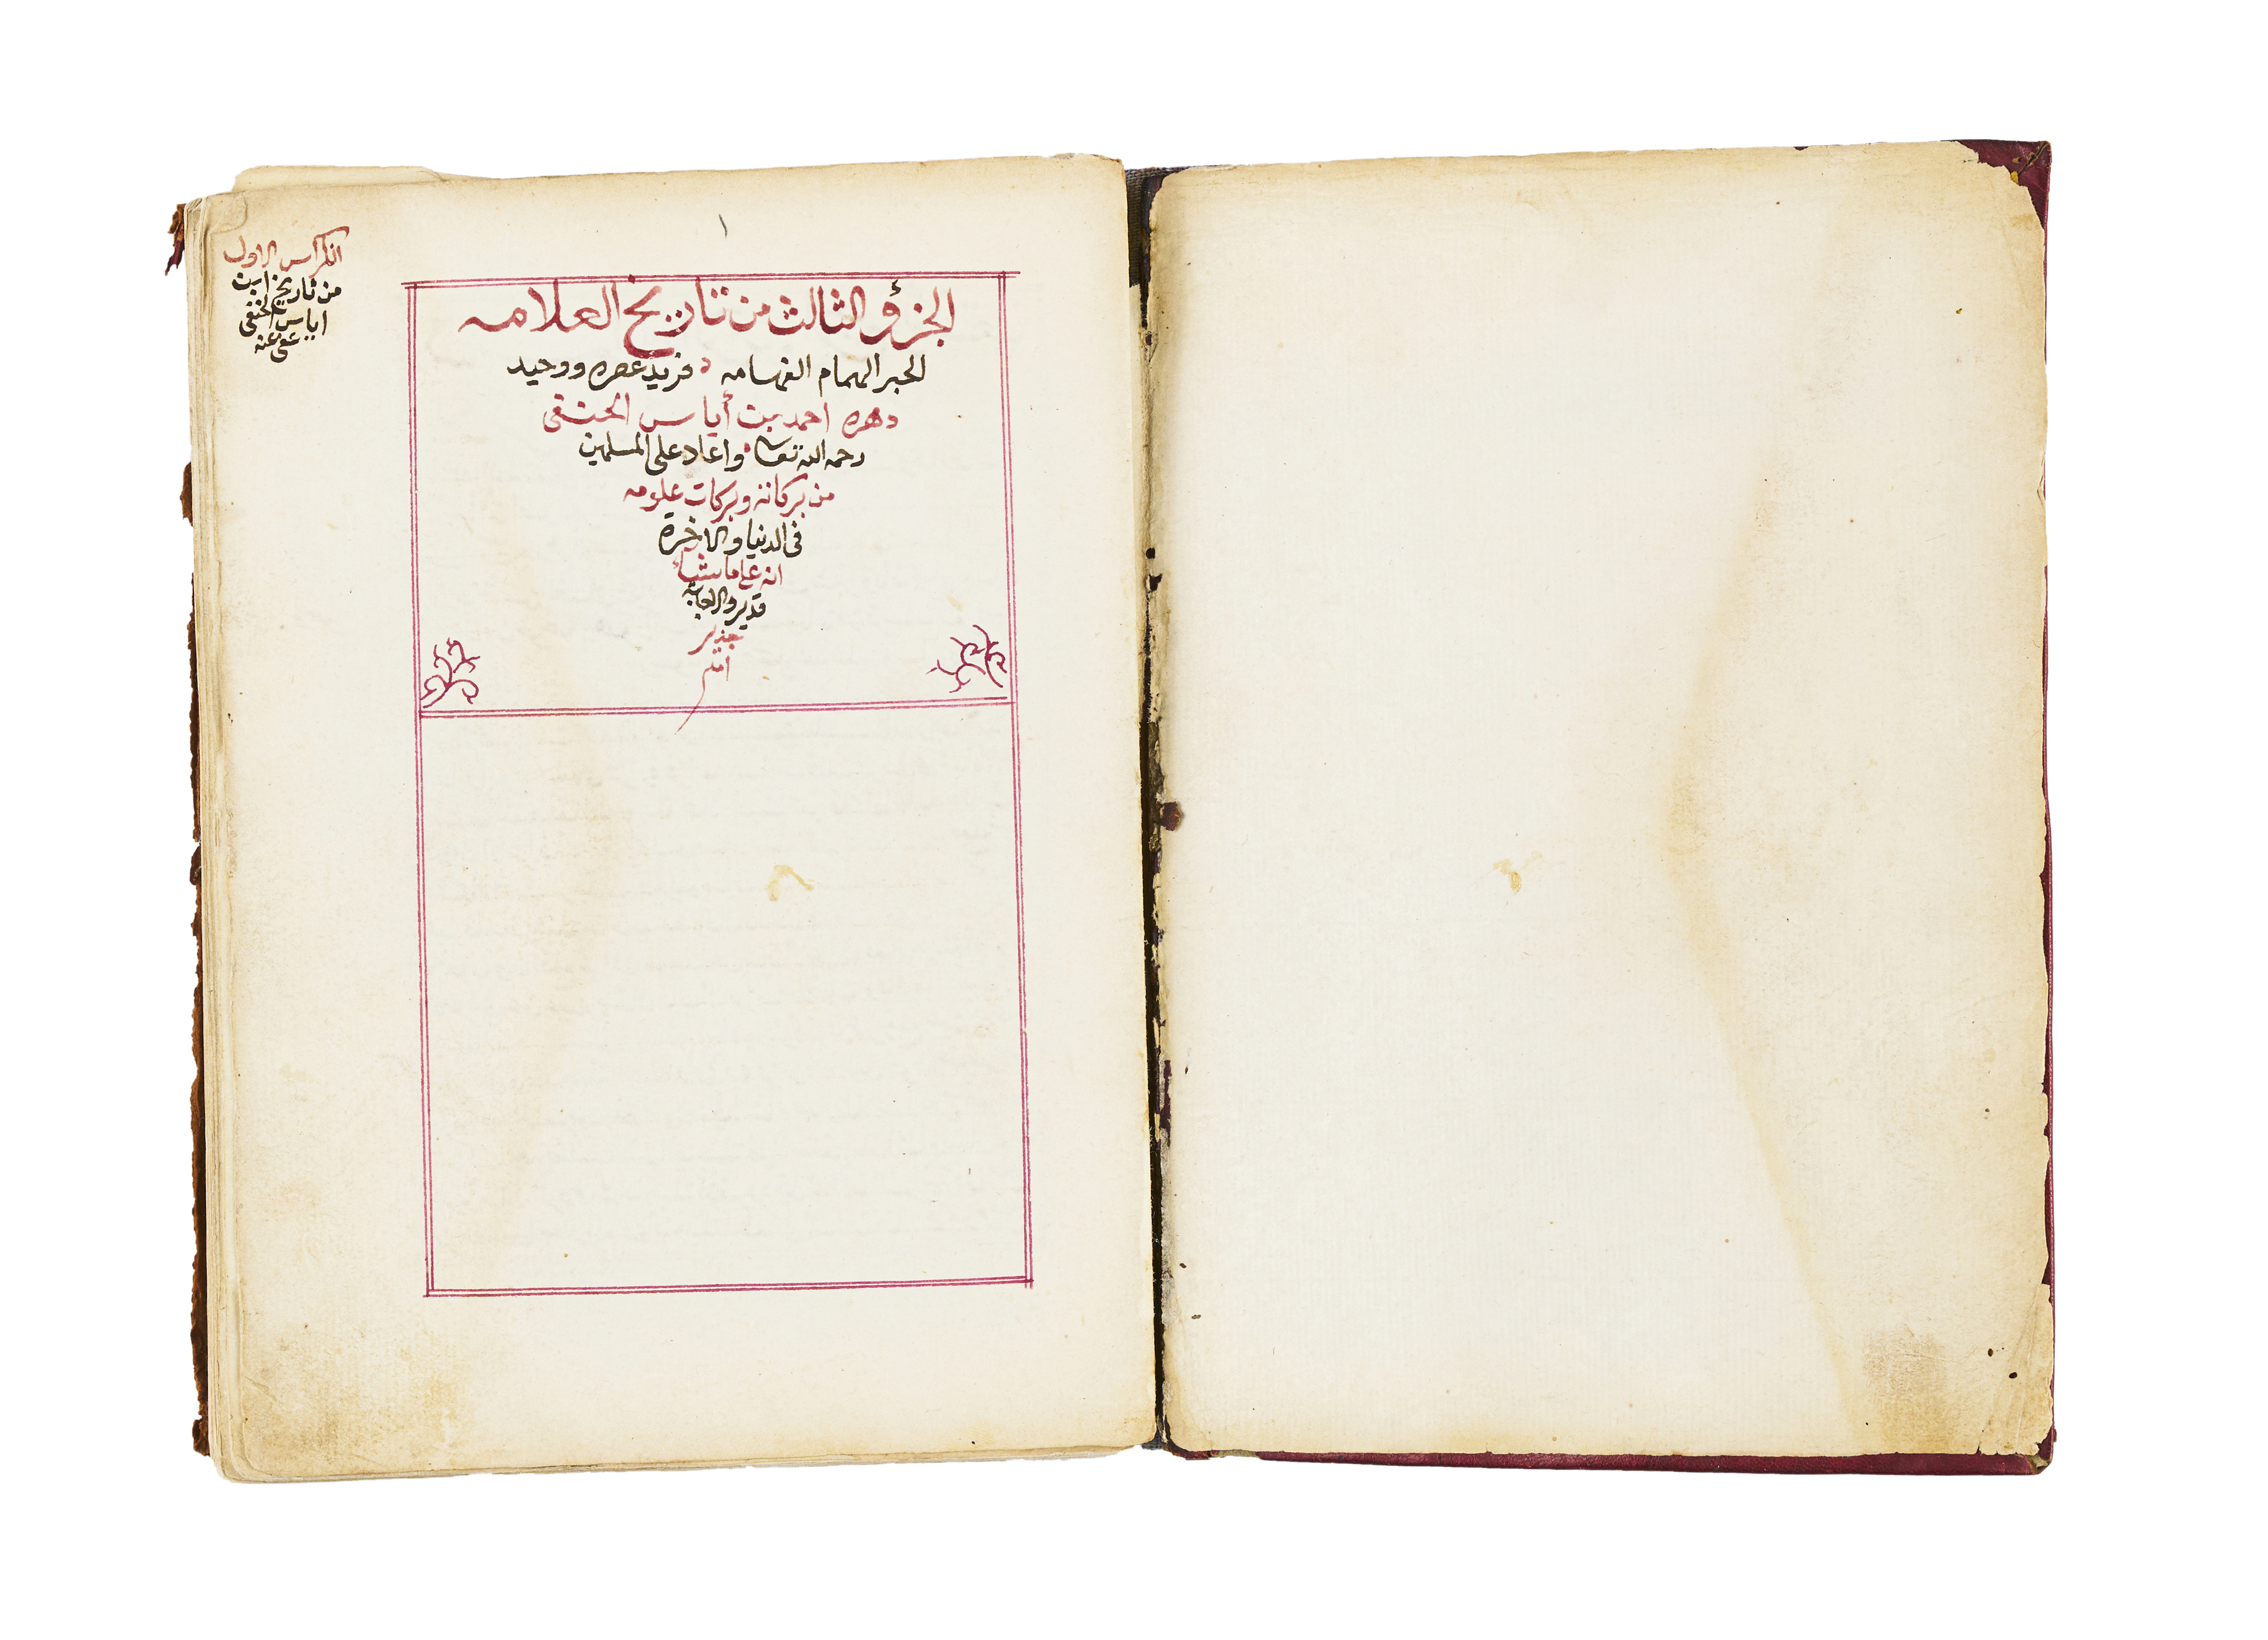 ١
الجزؤ الثالث من تاريخ العلامه
الحبر الهمام الفهامه فريد عصره ووحيد
دهره احمد بن أياس الحنفى
رحمه الله تعا واعاد على المسلمين
من بركاته وبركات علومه
فى الدنيا والاخرة
انه على ما يشاء
قدير وبالاجابة
جدير
امين
الكراس الاول
من تاريخ ابن
اياس الحنفى
عفى عنه